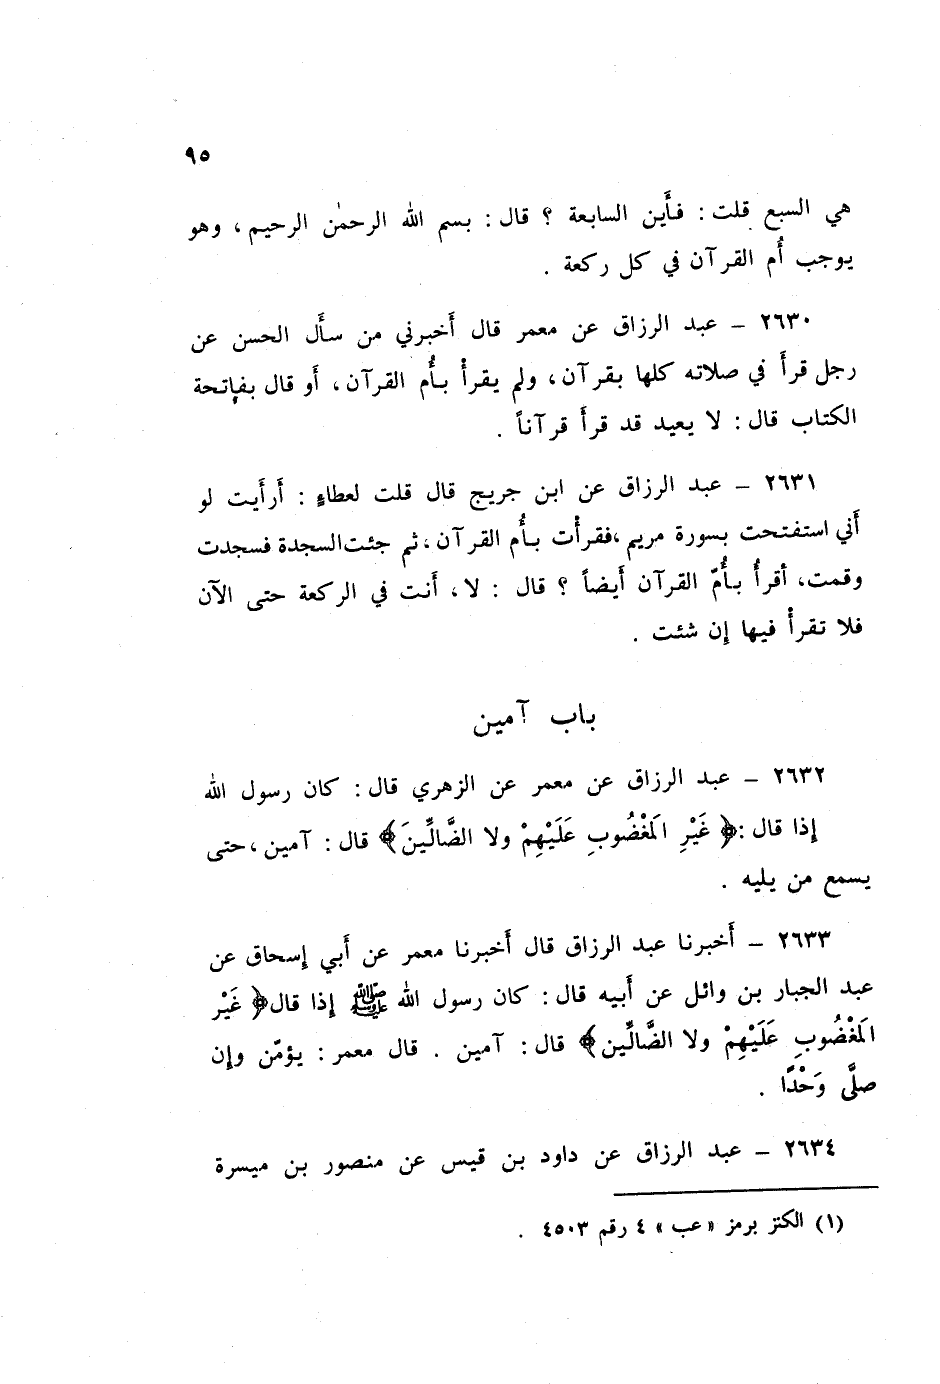 ٩٥
هي السبع قلت : فأَين السابعة ؟ قال : بسم الله الرحمٰن الرحيم ، وهو
يوجب أُم القرآن في كل ركعة .
٢٦٣٠ – عبد الرزاق عن معمر قال أَخبرني من سأَل الحسن عن
رجل قرأَ في صلاته كلها بقرآن ، ولم يقرأْ بأُم القرآن ، أَو قال بفاتحة
الكتاب قال : لا يعيد قد قرأَ قرآناً .
٢٦٣١ – عبد الرزاق عن ابن جريج قال قلت لعطاءٍ : أَرأَيت لو
أَني استفتحت بسورة مريم ،فقرأْت بأُم القرآن ، ثم جئت السجدة فسجدت
وقمت ، أقرأُ بأُمّ القرآن أَيضاً ؟ قال : لا ، أَنت في الركعة حتى الآن
فلا تقرأْ فيها إن شئت .
باب آمين
٢٦٣٢ – عبد الرزاق عن معمر عن الزهري قال : كان رسول الله
إذا قال :﴿ غَيْرِ المَغْضُوبِ عَلَيْهِمْ ولا الضَّالِّينَ﴾ قال : آمين ،حتى
يسمع من يليه .
٢٦٣٣ – أَخبرنا عبد الرزاق قال أَخبرنا معمر عن أَبي إسحاق عن
عبد الجبار بن وائل عن أَبيه قال : كان رسول الله ﷺ إذا قال﴿ غَيْرِ
المَغْضُوبِ عَلَيْهِمْ ولا الضَّالِّين﴾ قال : آمين . قال معمر : يؤمّن وإن
صلَّى وَحْدًا .
٢٦٣٤ – عبد الرزاق عن داود بن قيس عن منصور بن ميسرة
(١) الكنز برمز «عب » ٤ رقم ٤٥٠٣ .